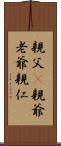 親父 親爺
老爺 親仁